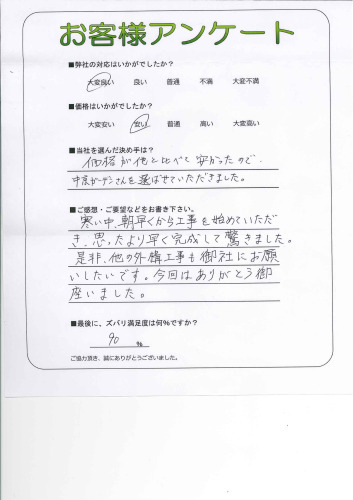 お客様アンケート
■弊社の対応はいかがでしたか?
大変良い 良い 普通 不満 大変不満
■価格はいかがでしたか?
大変安い 安い 普通 高い 大変高い
■当社を選んだ決め手は?
価格が他と比べて安かったので、
中京ガーデンさんを選ばせていただきました。
■ご感想・ご要望などをお書き下さい。
寒い中、朝早くから工事を始めていただ
き、思ったより早く完成して驚きました。
是非、他の外構工事も御社にお願
いしたいです。今回はありがとう御
座いました。
■最後に、ズバリ満足度は何%ですか?
90 %
ご協力頂き、誠にありがとうございました。